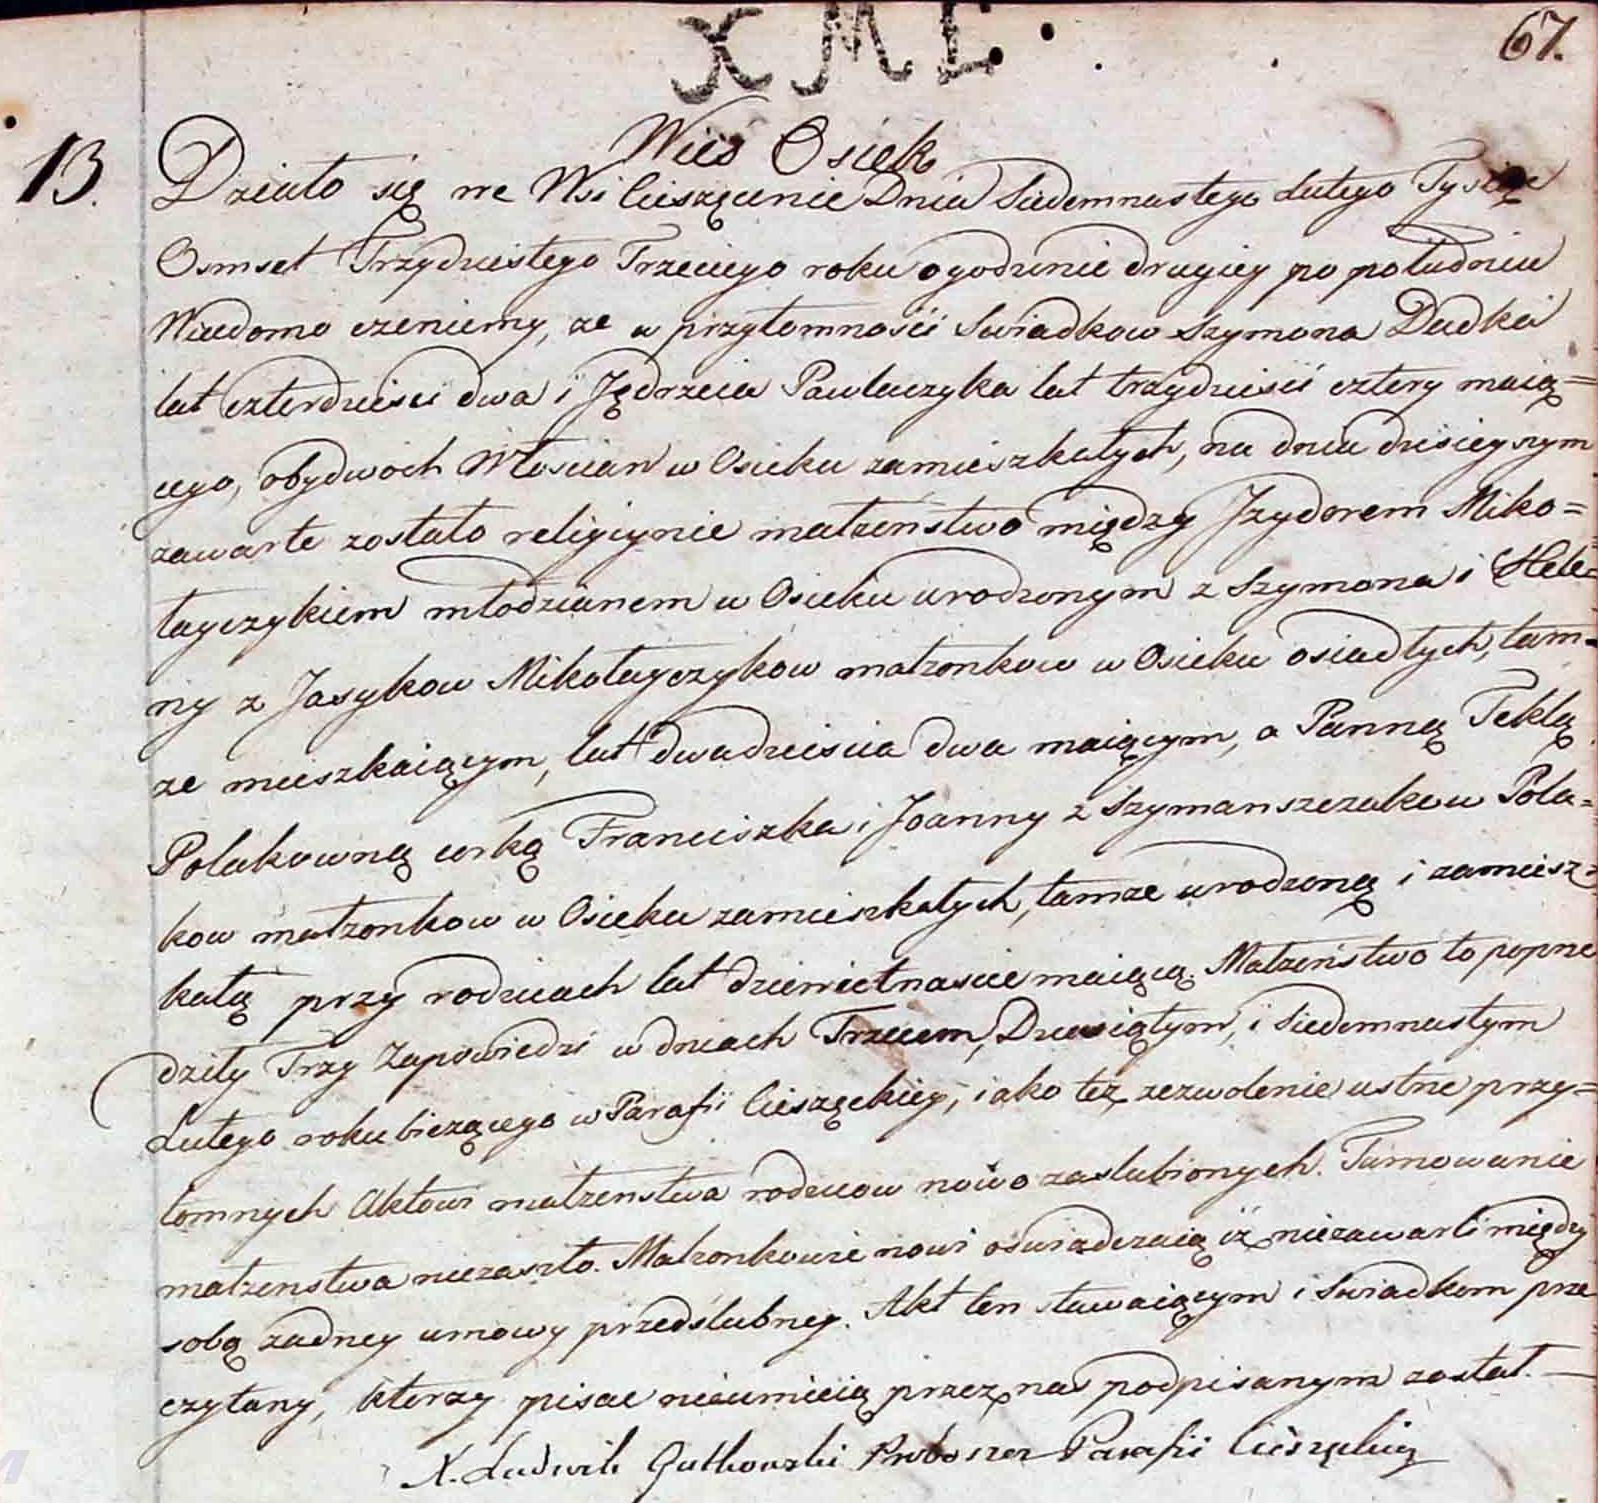 XML.
67.
Wieś Osiek
13. Działo się we Wsi Cieszęcinie Dnia Siedemnastego Lutego Tysiąc
Osmset Trzydziestego Trzeciego roku o godzinie drugiey po południu
Wiadomo czeniemy, ze w przytomnosci Swiadkow Szymona Dudka
lat czterdziesci dwa i Jędrzeia Pawlaczyka lat trzydziesci cztery maią=
cego, obydwoch Włoscian w Osieku zamieszkałych, na dniu dzisieyszym
zawarte zostało religiynie małzeństwo między Jzydorem Miko=
łayczykiem młodzianem w Osieku urodzonym z Szymona i Hele=
ny z Jasykow Mikołayczykow małzonkow w Osieku osiadłych, tam=
ze mieszkaiącym, lat dwadziescia dwa maiącym, a Panną Teklą
Polakowną corką Franciszka i Joanny z Szymanszczakow Pola=
kow małzonkow w Osieku zamieszkałych, tamze urodzoną i zamiesz=
kałą przy rodzicach lat dziewietnascie maiącą. Małzeństwo to poprze
dziły Trzy Zapowiedzi w dniach Trzecim, Dziesiątym, i Siedemnastym
Lutego roku biezącego w Parafii Cieszęckiey, iako też zezwolenie ustne przy=
tomnych Aktowi małzenstwa rodzicow nowo zaslubionych. Tamowanie
małzenstwa niezaszło. Małzonkowie nowi oswiadczaią iż niezawarli między
sobą zadney umowy przedślubney. Akt ten stawaiącym i Swiadkom prze
czytany, ktorzy pisac nieumieią przez nas podpisanym został. —
X. Ludwik Gutkowski Proboszcz Parafii Cieszęckiey